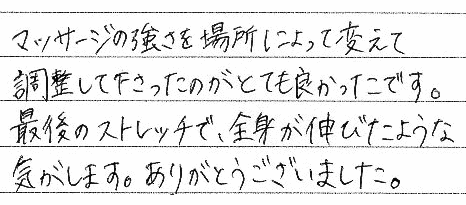 マッサージの強さを場所によって変えて
調整して下さったのがとても良かったです。
最後のストレッチで、全身が伸びたような
気がします。ありがとうございました。